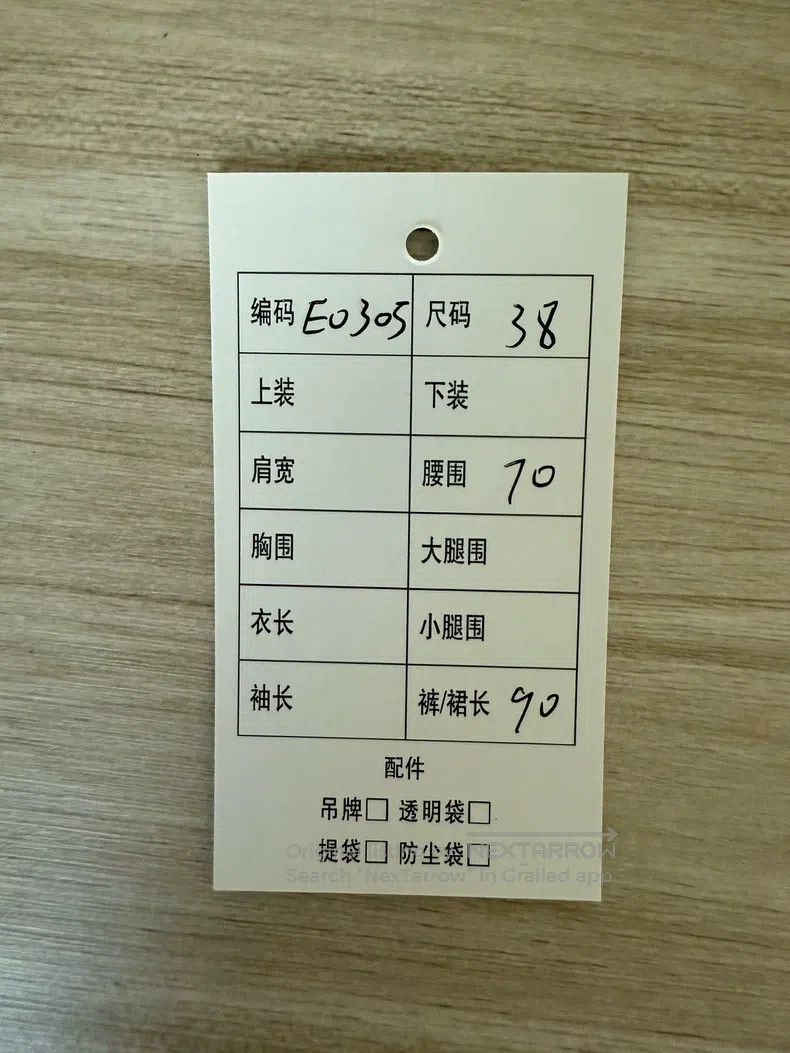 编码 E0305 尺码 38
上装 下装
肩宽 腰围 70
胸围 大腿围
衣长 小腿围
袖长 裤/裙长 90
配件
吊牌□ 透明袋□
提袋□ 防尘袋□
NEXTARROW
Search "NexTarrow" in Grailed app.